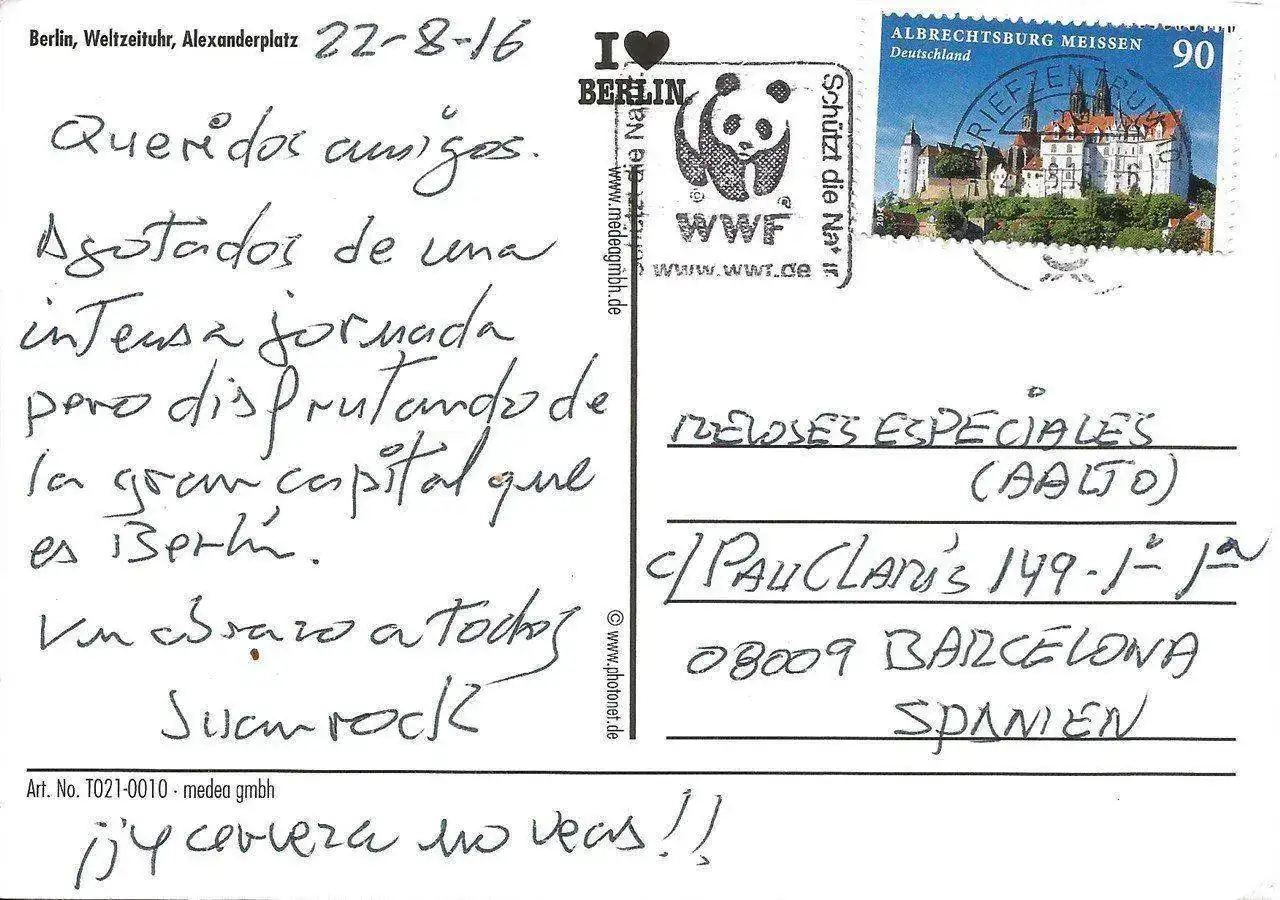 Berlin, Weltzeituhr, Alexanderplatz
22-8-16
Queridos amigos.
Agotados de una
intensa jornada
pero disfrutando de
la gran capital que
es Berlín.
Un abrazo a todos
Juanrock
Art. No. T021-0010 · medea gmbh
¡¡Y cerveza no veas!!
I ♥
BERLIN
www.medeagmbh.de
© www.photonet.de
WWF
www.wwf.de
Schützt die Natur
ALBRECHTSBURG MEISSEN
Deutschland
90
BRIEFZENTRUM
RELOJES ESPECIALES
(AALTO)
c/ PAU CLARÍS 149 - 1º 1ª
08009 BARCELONA
SPANIEN